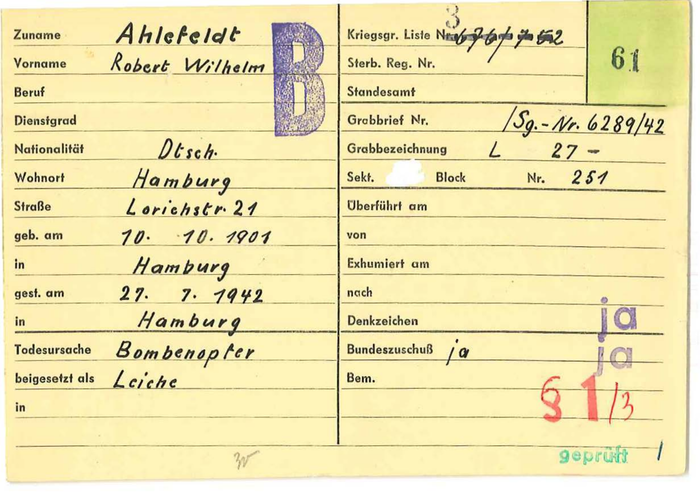 Zuname Ahlefeldt
Vorname Robert Wilhelm
Beruf
Dienstgrad
Nationalität Dtsch.
Wohnort Hamburg
Straße Lorichstr. 21
geb. am 10. 10. 1901
in Hamburg
gest. am 27. 7. 1942
in Hamburg
Todesursache Bombenopfer
beigesetzt als Leiche
in
B
3
Kriegsgr. Liste Nr.
Sterb. Reg. Nr.
Standesamt
61
Grabbrief Nr. /Sg.-Nr. 6289/42
Grabbezeichnung L 27 –
Sekt. Block Nr. 251
Überführt am
von
Exhumiert am
nach
Denkzeichen ja
Bundeszuschuß ja ja
Bem.
§ 1/3
geprüft